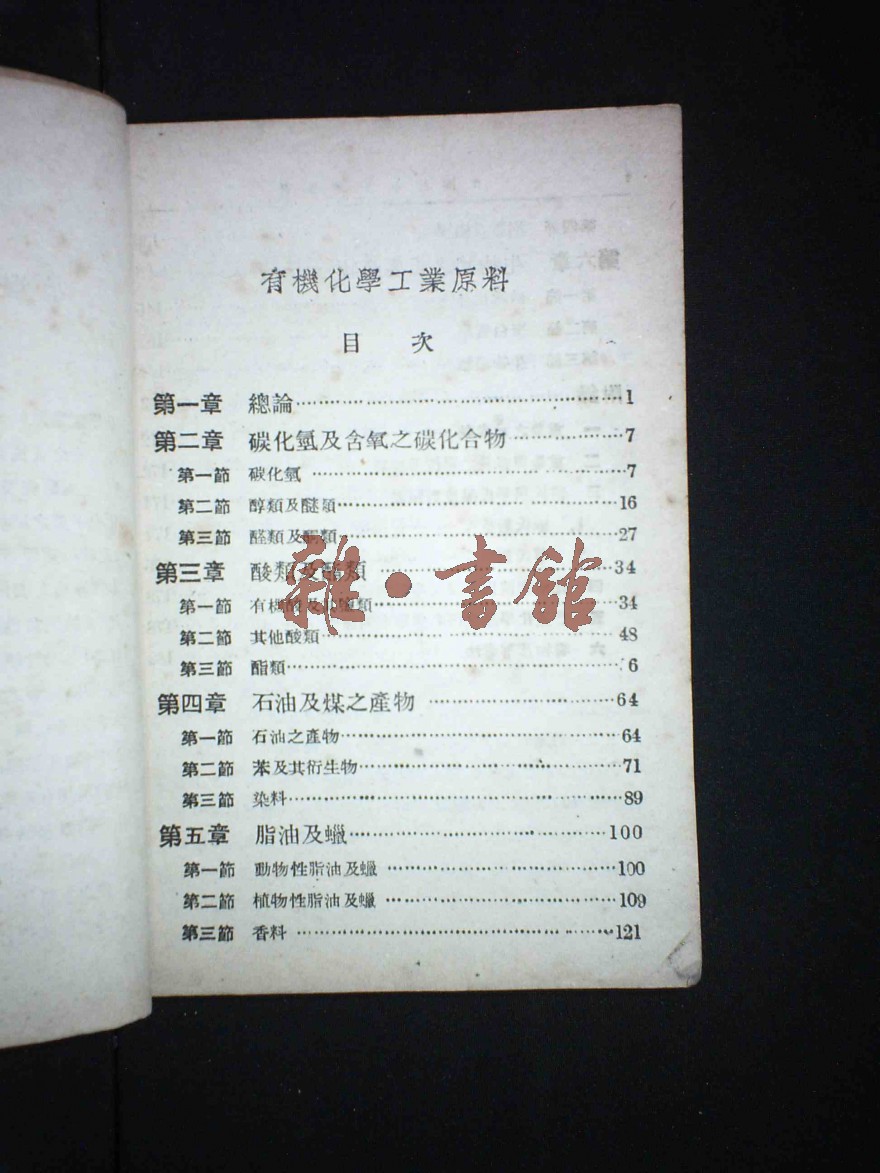 有機化學工業原料
目 次
第一章 總論 1
第二章 碳化氫及含氧之碳化合物 7
第一節 碳化氫 7
第二節 醇類及醚類 16
第三節 醛類及酮類 27
第三章 酸類及酯類 34
第一節 有機酸及 鹽類 34
第二節 其他酸類 48
第三節 酯類 6
第四章 石油及煤之產物 64
第一節 石油之產物 64
第二節 苯及其衍生物 71
第三節 染料 89
第五章 脂油及蠟 100
第一節 動物性脂油及蠟 100
第二節 植物性脂油及蠟 109
第三節 香料 121
雜·書館